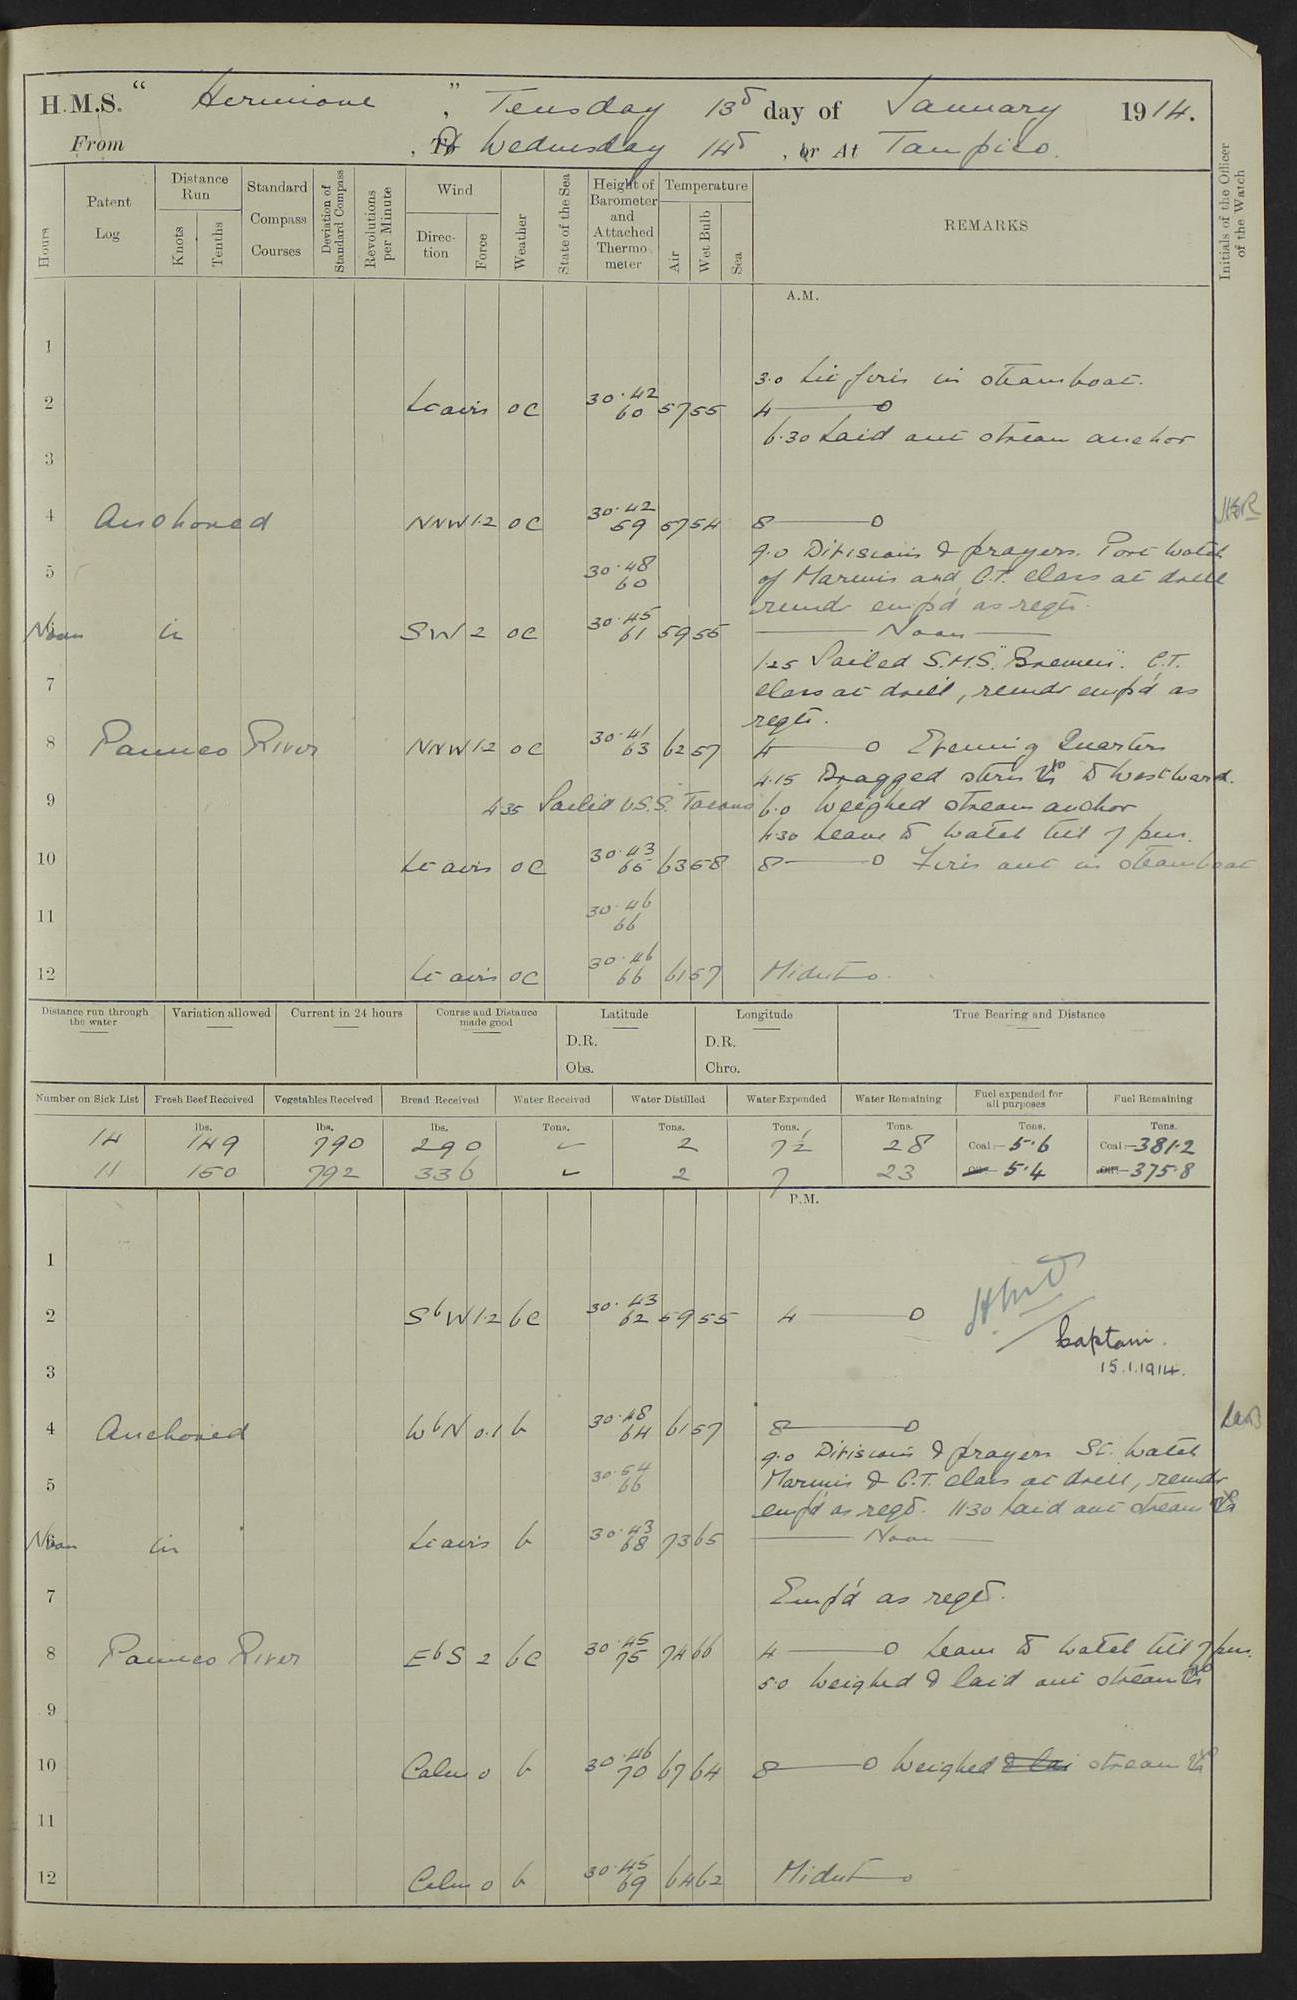 H.M.S. “ Hermione ”, Tuesday 13th day of January 1914.
From , To Wednesday 14th , or At Tampico.
Hours
Patent Log
Distance Run
Knots
Tenths
Standard Compass Courses
Deviation of Standard Compass
Revolutions per Minute
Wind
Direction
Force
Weather
State of the Sea
Height of Barometer and Attached Thermometer
Temperature
Air
Wet Bulb
Sea
REMARKS
Initials of the Officer of the Watch
A.M.
1
3.0 Lit fires in steamboat.
2 Lt airs oc 30.42 60 57 55 4 ——— 0
6.30 Laid out stream anchor
3
4 Anchored NNW 1.2 oc 30.42 59 57 54 8 ——— 0
9.0 Divisions & prayers. Port watch
5 30.48 60 of Marines and C.T. class at drill
remdr emp'd as reqte.
Noon in SW 2 oc 30.45 61 59 56 ——— Noon ———
1.25 Sailed S.M.S. "Bremen". C.T.
7 class at drill, remdr emp'd as
reqte.
8 Panuco River NNW 1.2 oc 30.41 63 62 57 4 ——— 0 Evening Quarters
4.15 Dragged stern to Westward.
9 4.35 Sailed U.S.S. Tacoma 6.0 Weighed stream anchor
4.30 Leave to watch till 7 pm.
10 Lt airs oc 30.43 65 63 58 8 ——— 0 Fires out in steamboat
11 30.46 66
12 Lt airs oc 30.46 66 61 57 Midnt 0
Distance run through the water
Variation allowed
Current in 24 hours
Course and Distance made good
Latitude
D.R.
Obs.
Longitude
D.R.
Chro.
True Bearing and Distance
Number on Sick List Fresh Beef Received Vegetables Received Bread Received Water Received Water Distilled Water Expended Water Remaining Fuel expended for all purposes Fuel Remaining
lbs. lbs. lbs. Tons. Tons. Tons. Tons. Tons. Tons.
14 149 790 290 ✓ 2 7½ 28 Coal— 5.6 Coal— 381.2
11 150 792 336 ✓ 2 7 23 Oil— 5.4 Oil— 375.8
P.M.
1
2 SbW 1.2 bc 30.43 62 59 55 4 ——— 0
Captain.
3 15.1.1914.
4 Anchored WbN 0.1 b 30.48 64 61 57 8 ——— 0
9.0 Divisions & prayers St. watch
5 30.54 66 Marines & C.T. class at drill, remdr
emp'd as reqd. 11.30 Laid out stream
Noon in Lt airs b 30.43 68 73 65 ——— Noon ———
7 Emp'd as reqd.
8 Panuco River EbS 2 bc 30.45 75 74 66 4 ——— 0 Leave to watch till 7 pm.
5.0 Weighed & laid out stream
9
10 Calm 0 b 30.46 70 67 64 8 ——— 0 Weighed & lai stream
11
12 Calm 0 b 30.45 69 64 62 Midnt 0